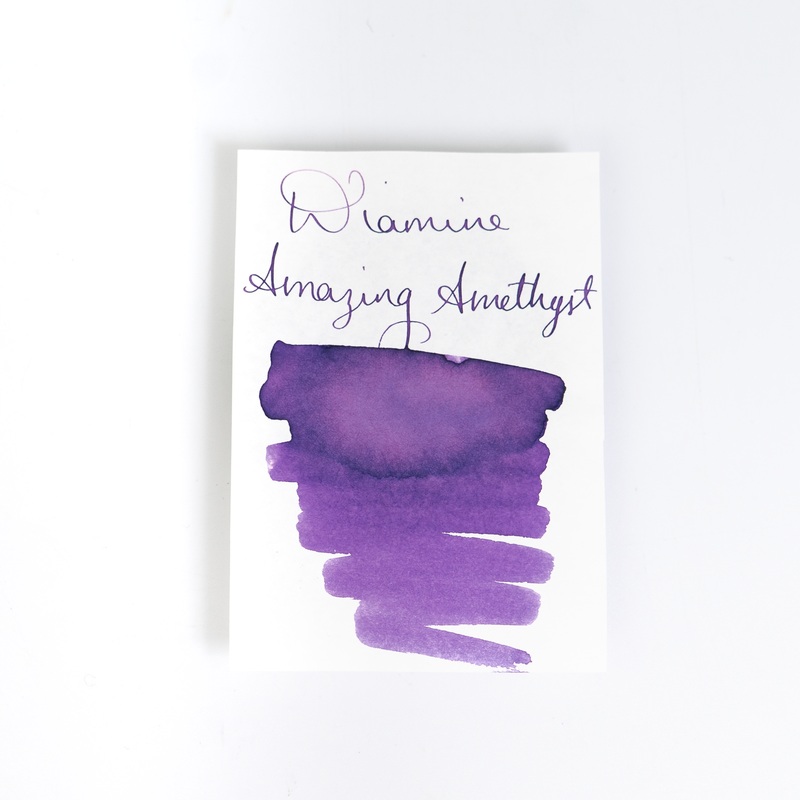 Diamine
Amazing Amethyst